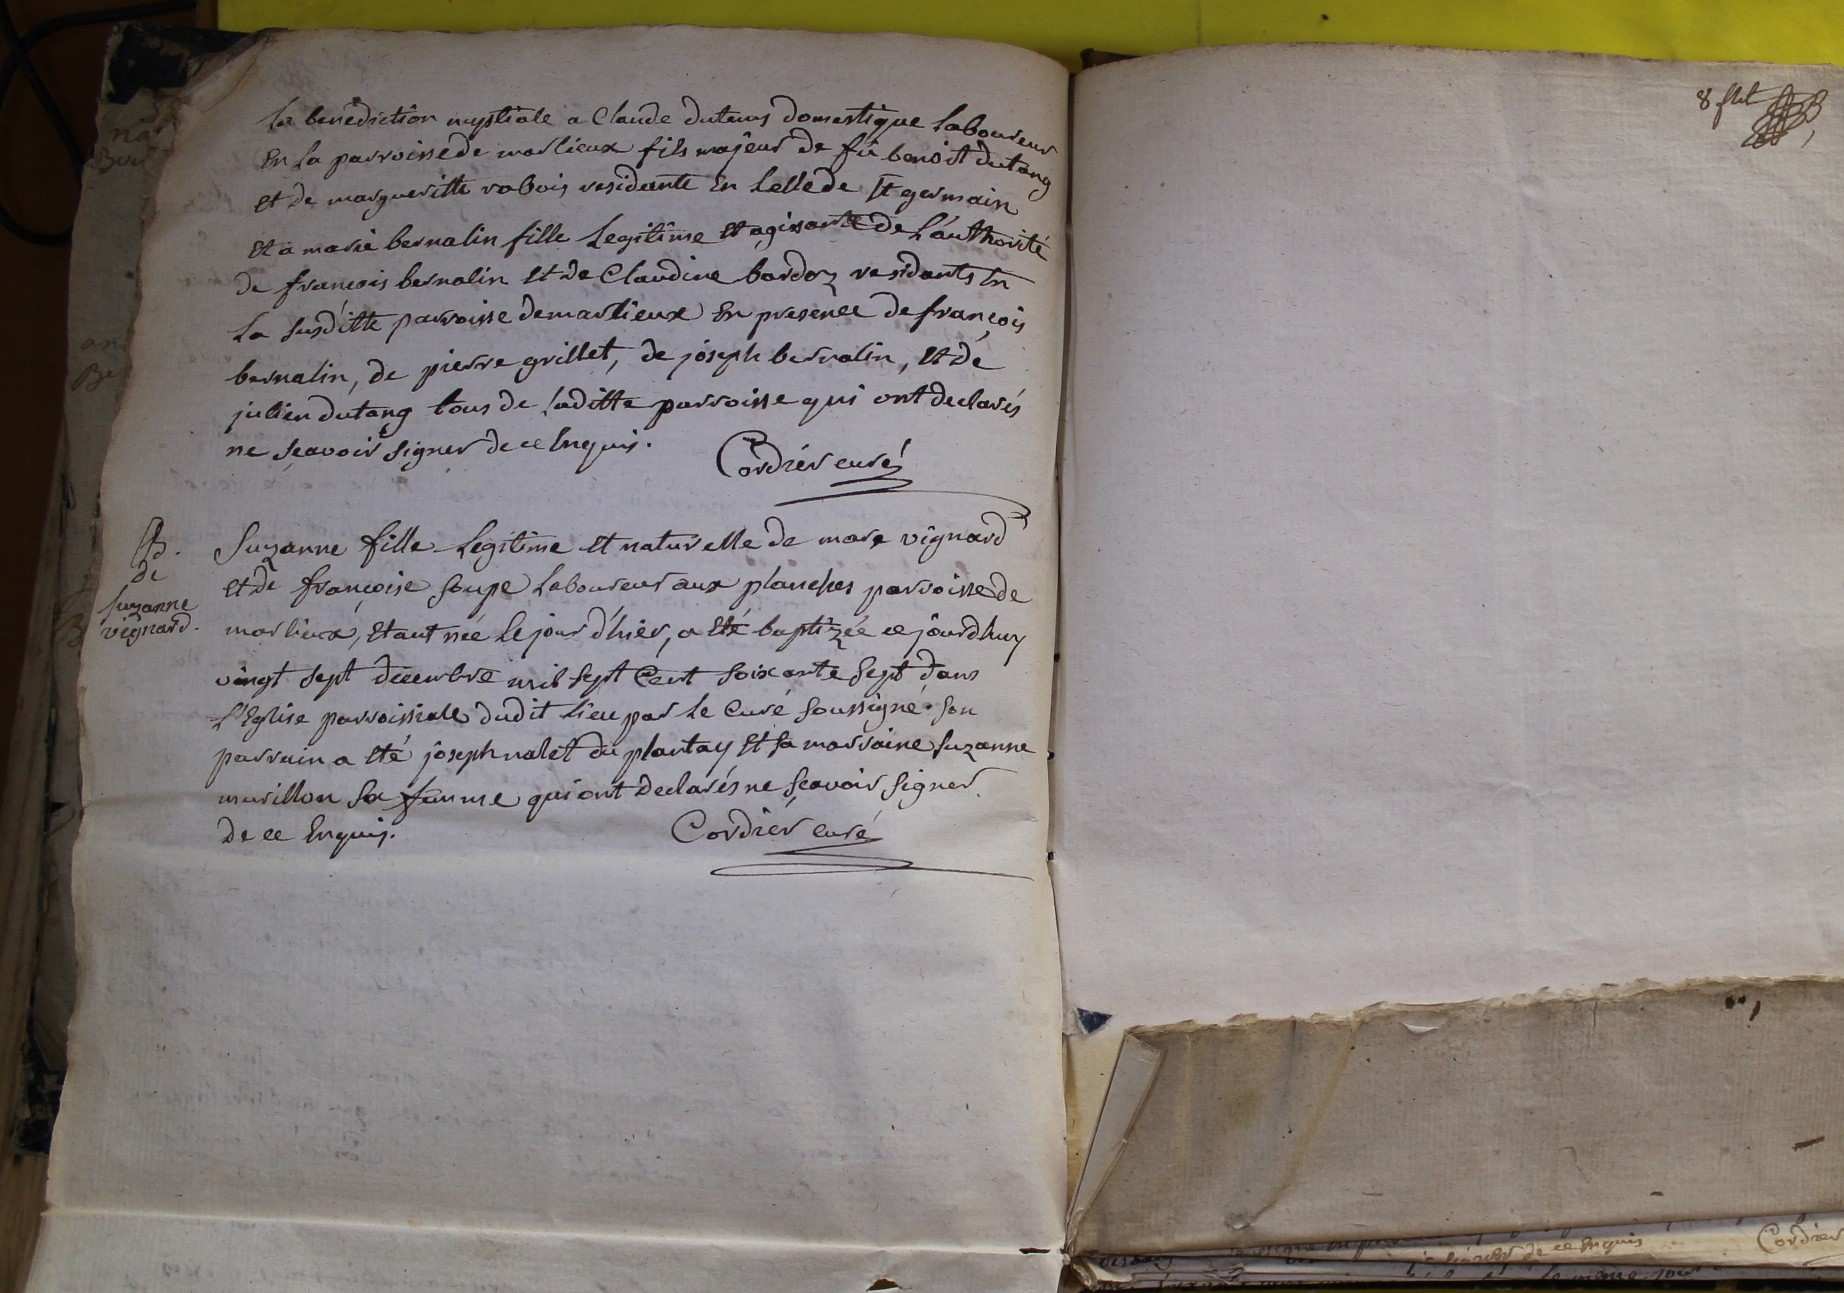 la benediction nuptiale a Claude dutang domestique laboureur
En la parroisse de marlieux fils majeur de fû benoit dutang
et de margueritte rabois residante En celle de St germain
et a marie bernalin fille legitime et agissante de l'authorité
de francois bernalin et de Claudine bardoz residants En
la susditte parroisse de marlieux En presence de françois
bernalin, de pierre grillet, de joseph bernalin, et de
julien dutang tous de laditte parroisse qui ont declarés
ne sçavoir signer de ce Enquis.
Cordier curé
B.
de
suzanne
vignard.
Suzanne fille legitime et naturelle de marc vignard
et de françoise soupe laboureur aux planches parroisse de
marlieux, etant née le jour d'hier, a eté baptizée ce jourd'huy
vingt sept decembre mil sept cent soixante sept dans
l'Eglise parroissiale dudit lieu par le Curé soussigné. son
parrain a eté joseph nalet du plantay et sa marraine suzanne
murillon sa femme qui ont declarés ne sçavoir signer
de ce Enquis.
Cordier curé
8
de ce Enquis
Cordier